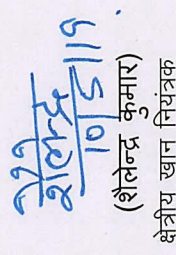 शैलेन्द्र
10/5/19
(शैलेन्द्र कुमार)
क्षेत्रीय खान नियंत्रक